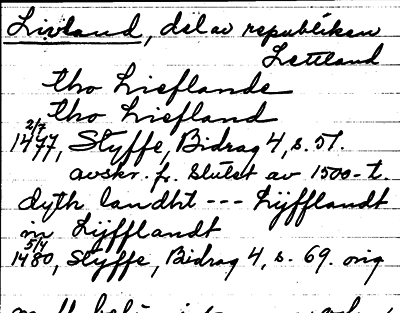 Livland, del av republiken
Lettland
tho Lieflande
tho Liefland
2/7
1477, Styffe, Bidrag 4, s. 51.
avskr. fr. slutet av 1500-t.
dyth landht --- Lÿfflandt
in Lÿfflandt
5/4
1480, Styffe, Bidrag 4, s. 69. orig